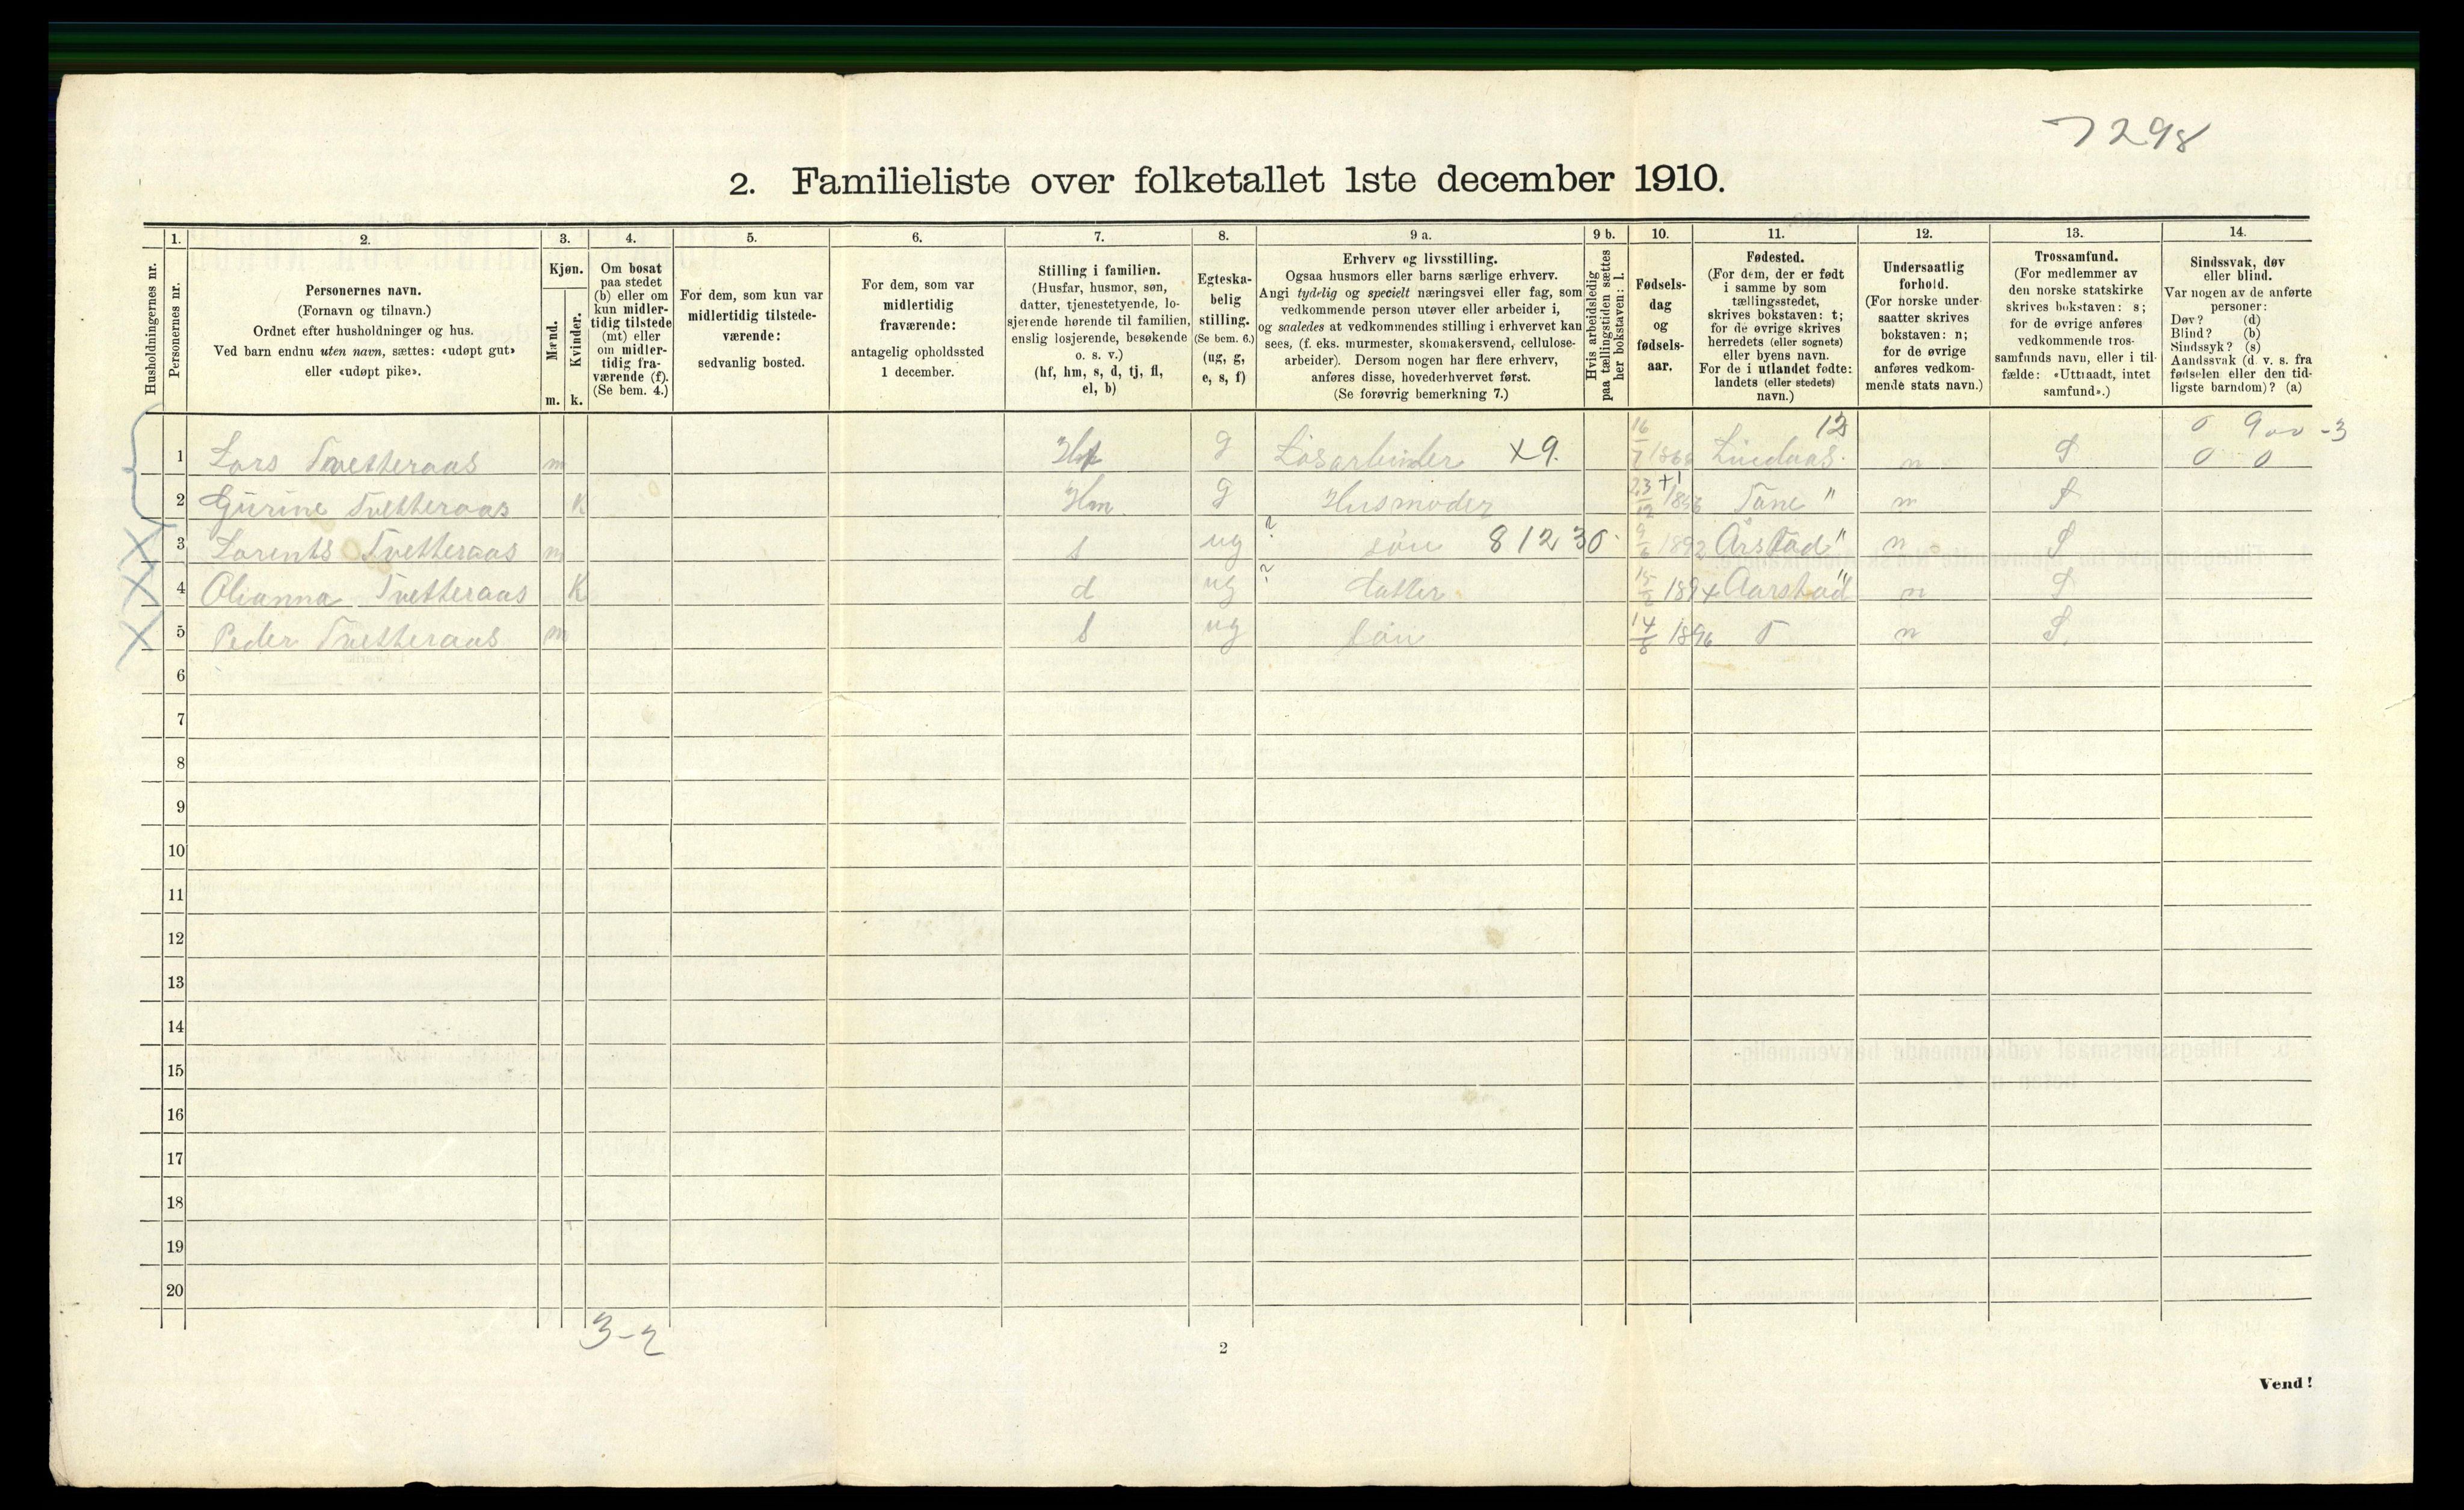 7298
2. Familieliste over folketallet 1ste december 1910.
Husholdningernes nr.
1.
Personernes nr.
2.
Personernes navn.
(Fornavn og tilnavn.)
Ordnet efter husholdninger og hus.
Ved barn endnu uten navn, sættes: «udøpt gut»
eller «udøpt pike».
3.
Kjøn.
Mænd.
m.
Kvinder.
k.
4.
Om bosat
paa stedet
(b) eller om
kun midler-
tidig tilstede
(mt) eller
om midler-
tidig fra-
værende (f).
(Se bem. 4.)
5.
For dem, som kun var
midlertidig tilstede-
værende:
sedvanlig bosted.
6.
For dem, som var
midlertidig
fraværende:
antagelig opholdssted
1 december.
7.
Stilling i familien.
(Husfar, husmor, søn,
datter, tjenestetyende, lo-
sjerende hørende til familien,
enslig losjerende, besøkende
o. s. v.)
(hf, hm, s, d, tj, fl,
el, b)
8.
Egteska-
belig
stilling.
(Se bem. 6.)
(ug, g,
e, s, f)
9 a.
Erhverv og livsstilling.
Ogsaa husmors eller barns særlige erhverv.
Angi tydelig og specielt næringsvei eller fag, som
vedkommende person utøver eller arbeider i,
og saaledes at vedkommendes stilling i erhvervet kan
sees, (f. eks. murmester, skomakersvend, cellulose-
arbeider). Dersom nogen har flere erhverv,
anføres disse, hovederhvervet først.
(Se forøvrig bemerkning 7.)
9 b.
Hvis arbeidsledig
paa tællingstiden sættes
her bokstaven: l.
10.
Fødsels-
dag
og
fødsels-
aar.
11.
Fødested.
(For dem, der er født
i samme by som
tællingsstedet,
skrives bokstaven: t;
for de øvrige skrives
herredets (eller sognets)
eller byens navn.
For de i utlandet fødte:
landets (eller stedets)
navn.)
12.
Undersaatlig
forhold.
(For norske under-
saatter skrives
bokstaven: n;
for de øvrige
anføres vedkom-
mende stats navn.)
13.
Trossamfund.
(For medlemmer av
den norske statskirke
skrives bokstaven: s;
for de øvrige anføres
vedkommende tros-
samfunds navn, eller i til-
fælde: «Uttraadt, intet
samfund».)
14.
Sindssvak, døv
eller blind.
Var nogen av de anførte
personer:
Døv? (d)
Blind? (b)
Sindssyk? (s)
Aandssvak (d. v. s. fra
fødselen eller den tid-
ligste barndom)? (a)
1 Lars Tvetteraas m Hf g Løsarbeider x9. 16/7 Lindaas. n S 0 0
2 Gurine Tvetteraas K Hm g Husmoder 23/12 " n S
3 Lorents Tvetteraas m s ug ? søn 81230 1892 Årstad " n S
4 Olianna Tvetteraas K d ug ? datter 1894 Aarstad " n S
5 Peder Tvetteraas m s ug søn 14/8 1896 T n S.
6
7
8
9
10
11
12
13
14
15
16
17
18
19
20
3-2
2
Vend!